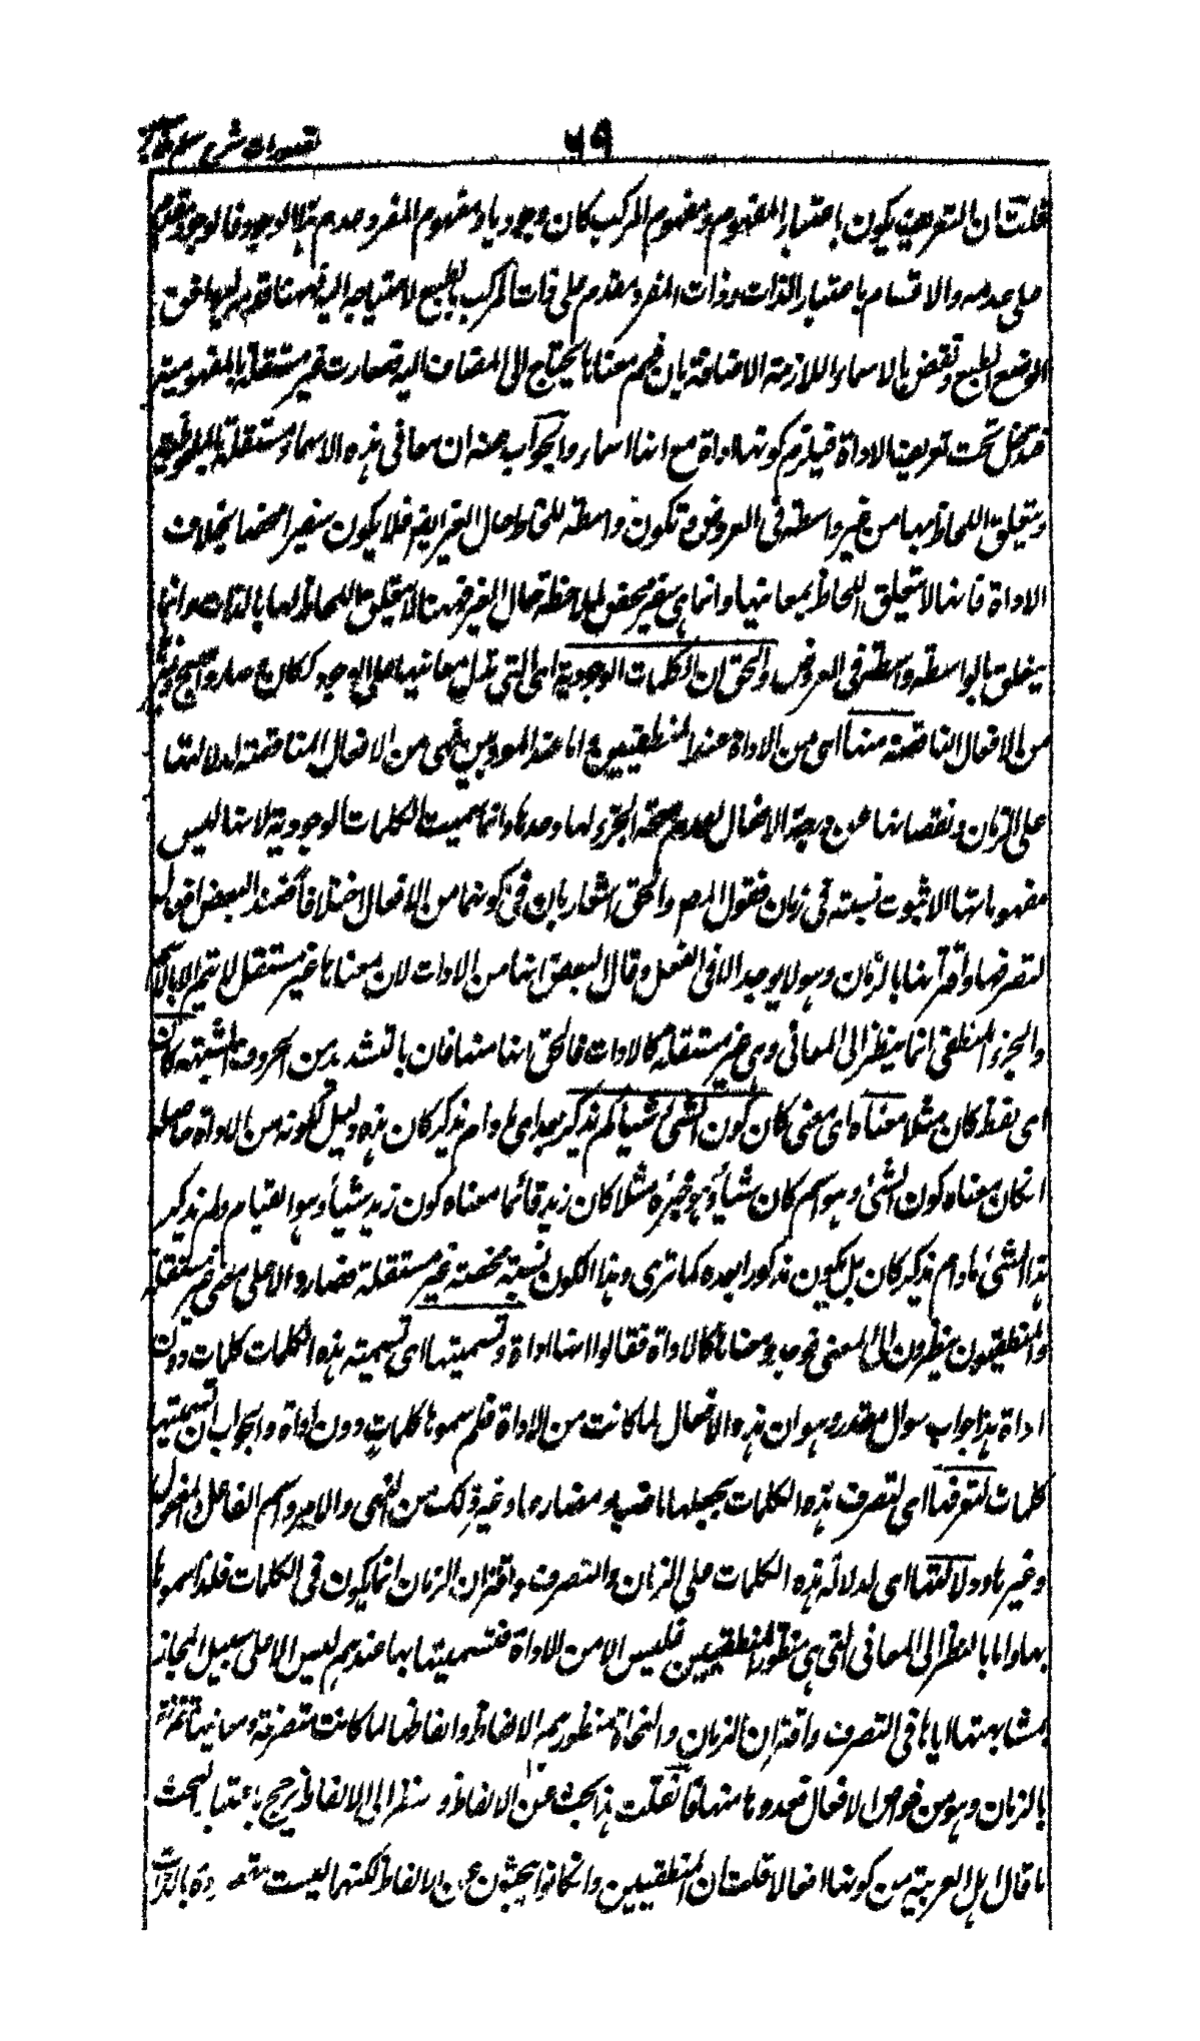 تصورات شرح سلم
٦٩
قلت ان التعريف يكون باعتبار المفهوم ومفهوم المركب كان وجوديا ومفهوم المفرد عدم هذا الوجود فالوجود مقدم
على عدمه والاقسام باعتبار الذات وذات المفرد مقدم على ذات المركب بالطبع لاحتياجه اليه فههنا قدم ليوافق
الوضع الطبع ونقض بالاسماء اللازمة الاضافة بان فهم معناها يحتاج الى المضاف اليه فصارت غير مستقلة بالمفهومية
فتدخل تحت تعريف الاداة فيلزم كونها اداة مع انها اسماء والجواب عنه ان معانى هذه الاسماء مستقلة بالملحوظية
ويتعلق اللحاظ بها من غير واسطة فى العروض وتكون واسطة للحاظ حال الغير ايضا فلا يكون سفيرا محضا بخلاف
الاداة فانها لا يتعلق اللحاظ بمعانيها وانما هى سفير محض لملاحظة حال الغير فههنا لا يتعلق اللحاظ لها بالذات وانما
يتعلق بالواسطة واسطة فى العروض والحق ان الكلمات الوجودية اى التى تدل معانيها على الوجود ككان وصار واصبح
من الافعال الناقصة منها اى من الاداة عند المنطقيين واما عند العربيين فهى من الافعال الناقصة لدلالتها
على الزمان ونقصانها عن درجة الافعال لعدم صحة الخبر لها وحدها وانما سميت الكلمات الوجودية لانها ليس
مفهوماتها الا ثبوت نسبته فى زمان فقول المص والحق اشعار بان فى كونها من الافعال اختلافا فعند البعض افعال
لتصرفها واقترانها بالزمان وهو لا يوجد الا فى الفعل وقال البعض انها من الادات لان معناها غير مستقل لا يتم الا بالاسم
والخبر والمنطقى انما ينظر الى المعانى وهى غير مستقلة كالادات فالحق انها منها فان بالتشديد من الحروف المشبهة كان
اى لفظ كان مثلا معناه اى معنى كان كون الشئ شيئا لم يذكر بعد اى ما دام يذكر كان هذه دليل لكونه من الاداة حاصله
ان كان معناه كون الشئ وهو اسم كان شيئا وهو خبره مثلا كان زيد قائما معناه كون زيد شيئا وهو القيام ولم يذكر
هذا الشئ ما دام يذكر كان بل يكون مذكورا بعده كما ترى وهذا الكون نسبة محضة غير مستقلة فصار دالا على معنى غير مستقلة
والمنطقيون ينظرون الى المعنى فوجدوا معناها كالاداة فقالوا انها اداة وتسميتها اى تسمية هذه الكلمات كلمات دون
اداة هذا جواب سوال مقدر وهو ان هذه الافعال لما كانت من الاداة فلم سموها كلمات دون اداة والجواب ان تسميتها
كلمات لتصرفها اى لتصرف هذه الكلمات بجعلها ماضيا ومضارعا وغير ذلك من النهى والامر واسم الفاعل والمفعول
وغيرها ودلالتها اى لدلالة هذه الكلمات على الزمان والتصرف واقتران الزمان انما يكون فى الكلمات فلذا سموها
بها واما بالنظر الى المعانى التى هى منظور المنطقيين فليس الا من الاداة فتسميتها بها عندهم ليس الا على سبيل المجاز
لمشابهتها اياها فى التصرف واقتران الزمان والنحاة منظورهم الالفاظ والفاظها لما كانت متصرفة ومعانيها مقترنة
بالزمان وهو من خواص الافعال فعدوها منها فان قلت هذا بحث عن الالفاظ والنظر الى الالفاظ يرجح باعتبار البحث
ما قال اهل العربية من كونها افعالا قلت ان المنطقيين وان كانوا يبحثون عن الالفاظ لكنها ليست مقصودة بالذات